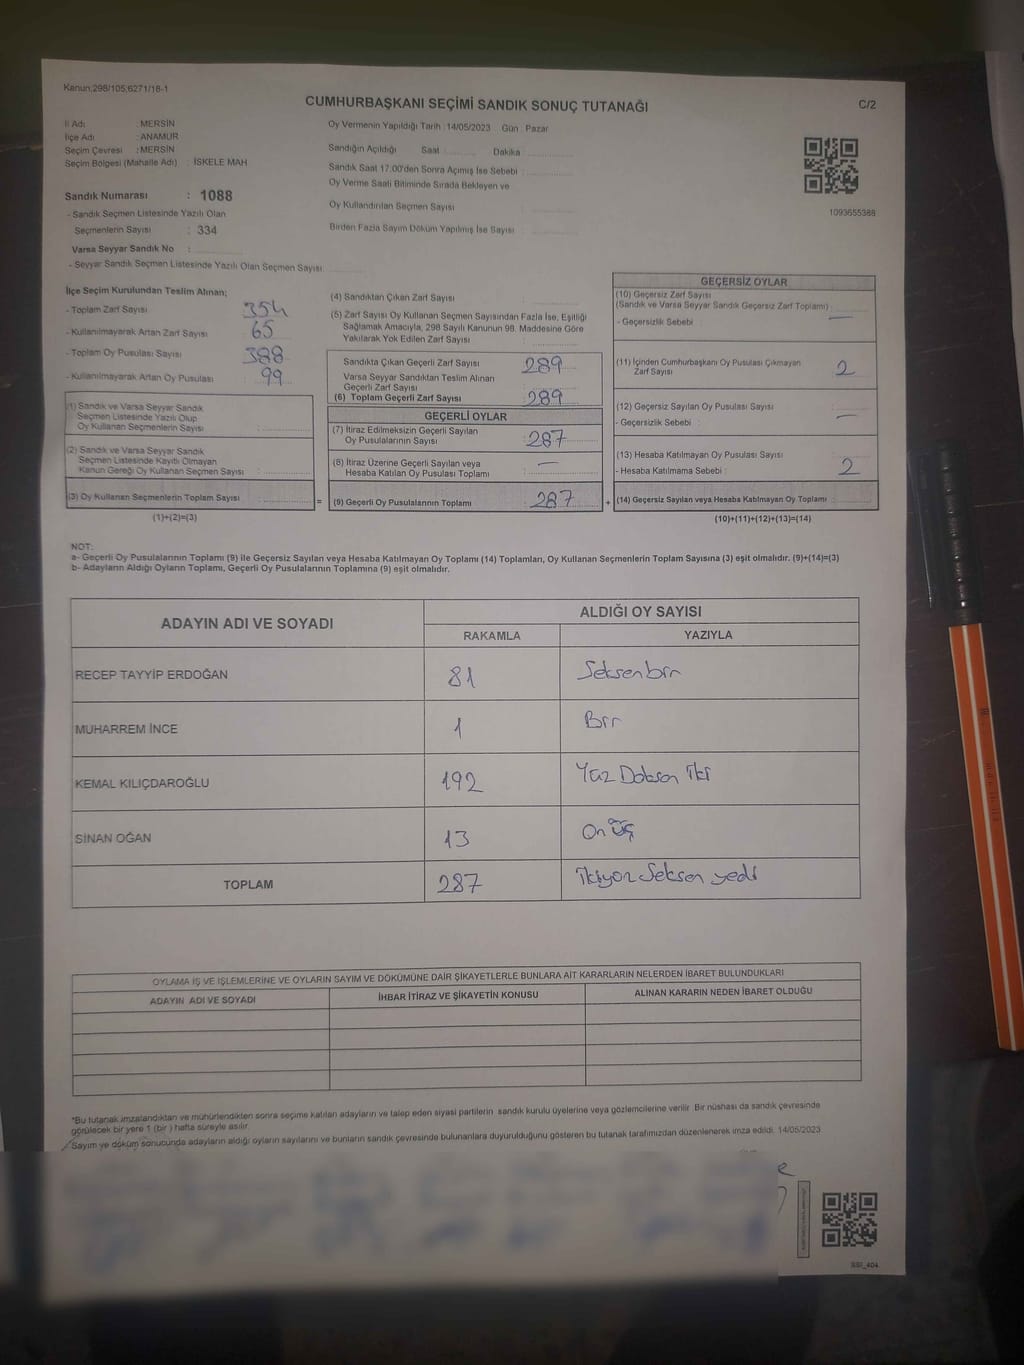 Kanun;298/105;6271/18-1
CUMHURBAŞKANI SEÇİMİ SANDIK SONUÇ TUTANAĞI
C/2
İl Adı : MERSİN
İlçe Adı : ANAMUR
Seçim Çevresi : MERSİN
Seçim Bölgesi (Mahalle Adı) : İSKELE MAH
Sandık Numarası : 1088
- Sandık Seçmen Listesinde Yazılı Olan
Seçmenlerin Sayısı : 334
Varsa Seyyar Sandık No :
- Seyyar Sandık Seçmen Listesinde Yazılı Olan Seçmen Sayısı
Oy Vermenin Yapıldığı Tarih : 14/05/2023 Gün : Pazar
Sandığın Açıldığı Saat Dakika
Sandık Saat 17.00'den Sonra Açımış İse Sebebi :
Oy Verme Saati Bitiminde Sırada Bekleyen ve
Oy Kullandırılan Seçmen Sayısı :
Birden Fazla Sayım Döküm Yapılmış İse Sayısı :
1093655388
İlçe Seçim Kurulundan Teslim Alınan;
- Toplam Zarf Sayısı 354
- Kullanılmayarak Artan Zarf Sayısı 65
- Toplam Oy Pusulası Sayısı 388
- Kullanılmayarak Artan Oy Pusulası 99
(1) Sandık ve Varsa Seyyar Sandık
Seçmen Listesinde Yazılı Olup
Oy Kullanan Seçmenlerin Sayısı :
(2) Sandık ve Varsa Seyyar Sandık
Seçmen Listesinde Kayıtlı Olmayan
Kanun Gereği Oy Kullanan Seçmen Sayısı :
(3) Oy Kullanan Seçmenlerin Toplam Sayısı :
(1)+(2)=(3)
=
(4) Sandıktan Çıkan Zarf Sayısı :
(5) Zarf Sayısı Oy Kullanan Seçmen Sayısından Fazla İse, Eşitliği
Sağlamak Amacıyla, 298 Sayılı Kanunun 98. Maddesine Göre
Yakılarak Yok Edilen Zarf Sayısı :
Sandıkta Çıkan Geçerli Zarf Sayısı : 289
Varsa Seyyar Sandıktan Teslim Alınan
Geçerli Zarf Sayısı :
(6) Toplam Geçerli Zarf Sayısı : 289
GEÇERLİ OYLAR
(7) İtiraz Edilmeksizin Geçerli Sayılan
Oy Pusulalarının Sayısı : 287
(8) İtiraz Üzerine Geçerli Sayılan veya
Hesaba Katılan Oy Pusulası Toplamı : —
(9) Geçerli Oy Pusulalarının Toplamı : 287
+
GEÇERSİZ OYLAR
(10) Geçersiz Zarf Sayısı
(Sandık ve Varsa Seyyar Sandık Geçersiz Zarf Toplamı) : —
- Geçersizlik Sebebi :
(11) İçinden Cumhurbaşkanı Oy Pusulası Çıkmayan
Zarf Sayısı : 2
(12) Geçersiz Sayılan Oy Pusulası Sayısı : —
- Geçersizlik Sebebi :
(13) Hesaba Katılmayan Oy Pusulası Sayısı : 2
- Hesaba Katılmama Sebebi :
(14) Geçersiz Sayılan veya Hesaba Katılmayan Oy Toplamı :
(10)+(11)+(12)+(13)=(14)
NOT:
a- Geçerli Oy Pusulalarının Toplamı (9) ile Geçersiz Sayılan veya Hesaba Katılmayan Oy Toplamı (14) Toplamları, Oy Kullanan Seçmenlerin Toplam Sayısına (3) eşit olmalıdır. (9)+(14)=(3)
b- Adayların Aldığı Oyların Toplamı, Geçerli Oy Pusulalarının Toplamına (9) eşit olmalıdır.
ADAYIN ADI VE SOYADI
ALDIĞI OY SAYISI
RAKAMLA YAZIYLA
RECEP TAYYİP ERDOĞAN 81 Seksenbir
MUHARREM İNCE 1 Bir
KEMAL KILIÇDAROĞLU 192 Yüz Doksan iki
SİNAN OĞAN 13 On üç
TOPLAM 287 ikiyüz Seksen yedi
OYLAMA İŞ VE İŞLEMLERİNE VE OYLARIN SAYIM VE DÖKÜMÜNE DAİR ŞİKAYETLERLE BUNLARA AİT KARARLARIN NELERDEN İBARET BULUNDUKLARI
ADAYIN ADI VE SOYADI İHBAR İTİRAZ VE ŞİKAYETİN KONUSU ALINAN KARARIN NEDEN İBARET OLDUĞU
*Bu tutanak imzalandıktan ve mühürlendikten sonra seçime katılan adayların ve talep eden siyasi partilerin sandık kurulu üyelerine veya gözlemcilerine verilir. Bir nüshası da sandık çevresinde
görülecek bir yere 1 (bir ) hafta süreyle asılır.
Sayım ve döküm sonucunda adayların aldığı oyların sayılarını ve bunların sandık çevresinde bulunanlara duyurulduğunu gösteren bu tutanak tarafımızdan düzenlenerek imza edildi. 14/05/2023
SSI_404